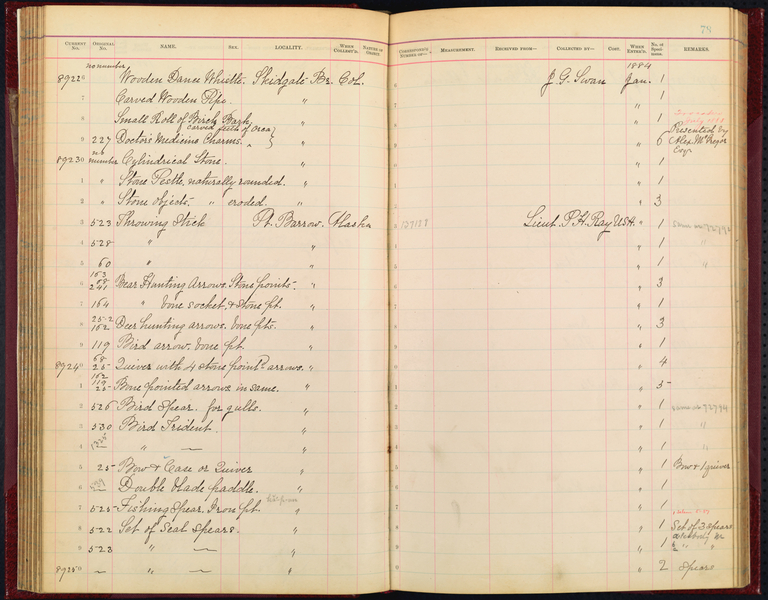 78
CURRENT No. ORIGINAL No. NAME. SEX. LOCALITY. WHEN COLLECT'D. NATURE OF OBJECT. MEASUREMENT. RECEIVED FROM— COLLECTED BY— COST. WHEN ENTER'D. No. of Speci-mens. REMARKS.
1884
89226 no number Wooden Dance Whistle. Skidgate Br. Col. J. G. Swan Jan. 1
7 Carved Wooden Pipe. " " 1
8 Small Roll of Birch Bark " " 1
carved teeth of Orca
9 227 Doctor's Medicine Charms. " " 6 Presented by Alex. McGregor Esqr.
89230 no number Cylindrical Stone. " " 1
1 " Stone Pestle, naturally rounded. " " 1
2 " Stone objects. " eroded. " " 3
3 523 Throwing Stick Pt. Barrow. Alaska 127188 Lieut. P. H. Ray U.S.A. " 1 same as 72794
4 528 " " " 1 "
5 60 " " " 1 "
6 163 241 Bear Hunting Arrows. Stone points. " " 3
7 164 " bone socket, & stone pt. " " 1
8 252 162 Deer hunting arrows. bone pts. " " 3
9 119 Bird arrow. bone pt. " " 1
89240 68 25 Quiver with 4 stone point'd arrows. " " 4
1 162 119 25 Bone pointed arrows in same. " " 5
2 526 Bird Spear. for gulls. " " 1 same as 72794
3 530 Bird Trident. " " 1 "
4 " — " " 1 "
5 25 Bow & Case or Quiver " " 1 Bow & 1 quiver
6 Double blade paddle. " " 1
7 525 Fishing Spear. Iron pt. " " 1
8 522 Set of Seal Spears. " " 1 Set of 3 spears
9 523 " — " " 1
89250 — " — " " 2 spears